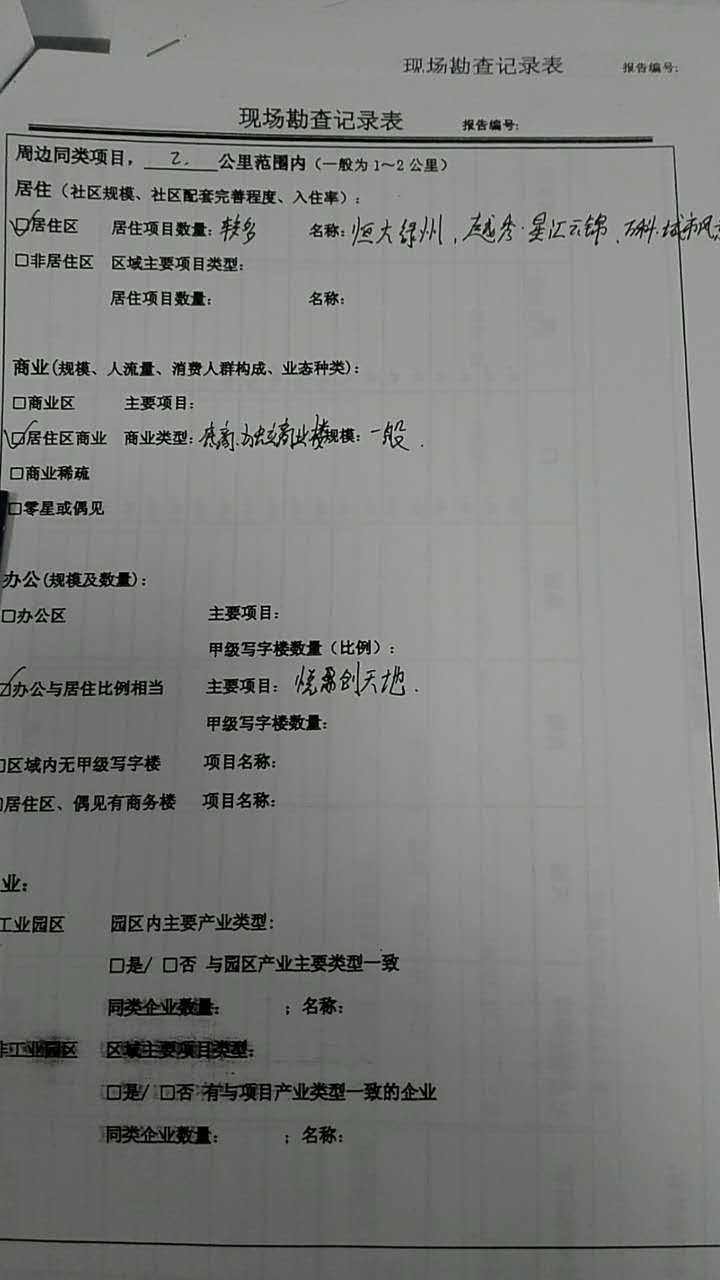 现场勘查记录表 报告编号:
现场勘查记录表 报告编号:
周边同类项目，2.公里范围内（一般为1～2公里）
居住（社区规模、社区配套完善程度、入住率）:
☑居住区 居住项目数量: 较多 名称: 恒大绿洲、越秀·星汇云锦、万科·城市风
□非居住区 区域主要项目类型:
居住项目数量: 名称:
商业(规模、人流量、消费人群构成、业态种类):
□商业区 主要项目:
☑居住区商业 商业类型: 底商、独立商业楼 规模: 一般.
□商业稀疏
□零星或偶见
办公(规模及数量):
□办公区 主要项目:
甲级写字楼数量（比例）:
☑办公与居住比例相当 主要项目: 创天地.
甲级写字楼数量:
□区域内无甲级写字楼 项目名称:
□居住区、偶见有商务楼 项目名称:
业:
工业园区 园区内主要产业类型:
□是/ □否 与园区产业主要类型一致
同类企业数量: ; 名称:
非工业园区 区域主要项目类型:
□是/ □否 有与项目产业类型一致的企业
同类企业数量: ; 名称: